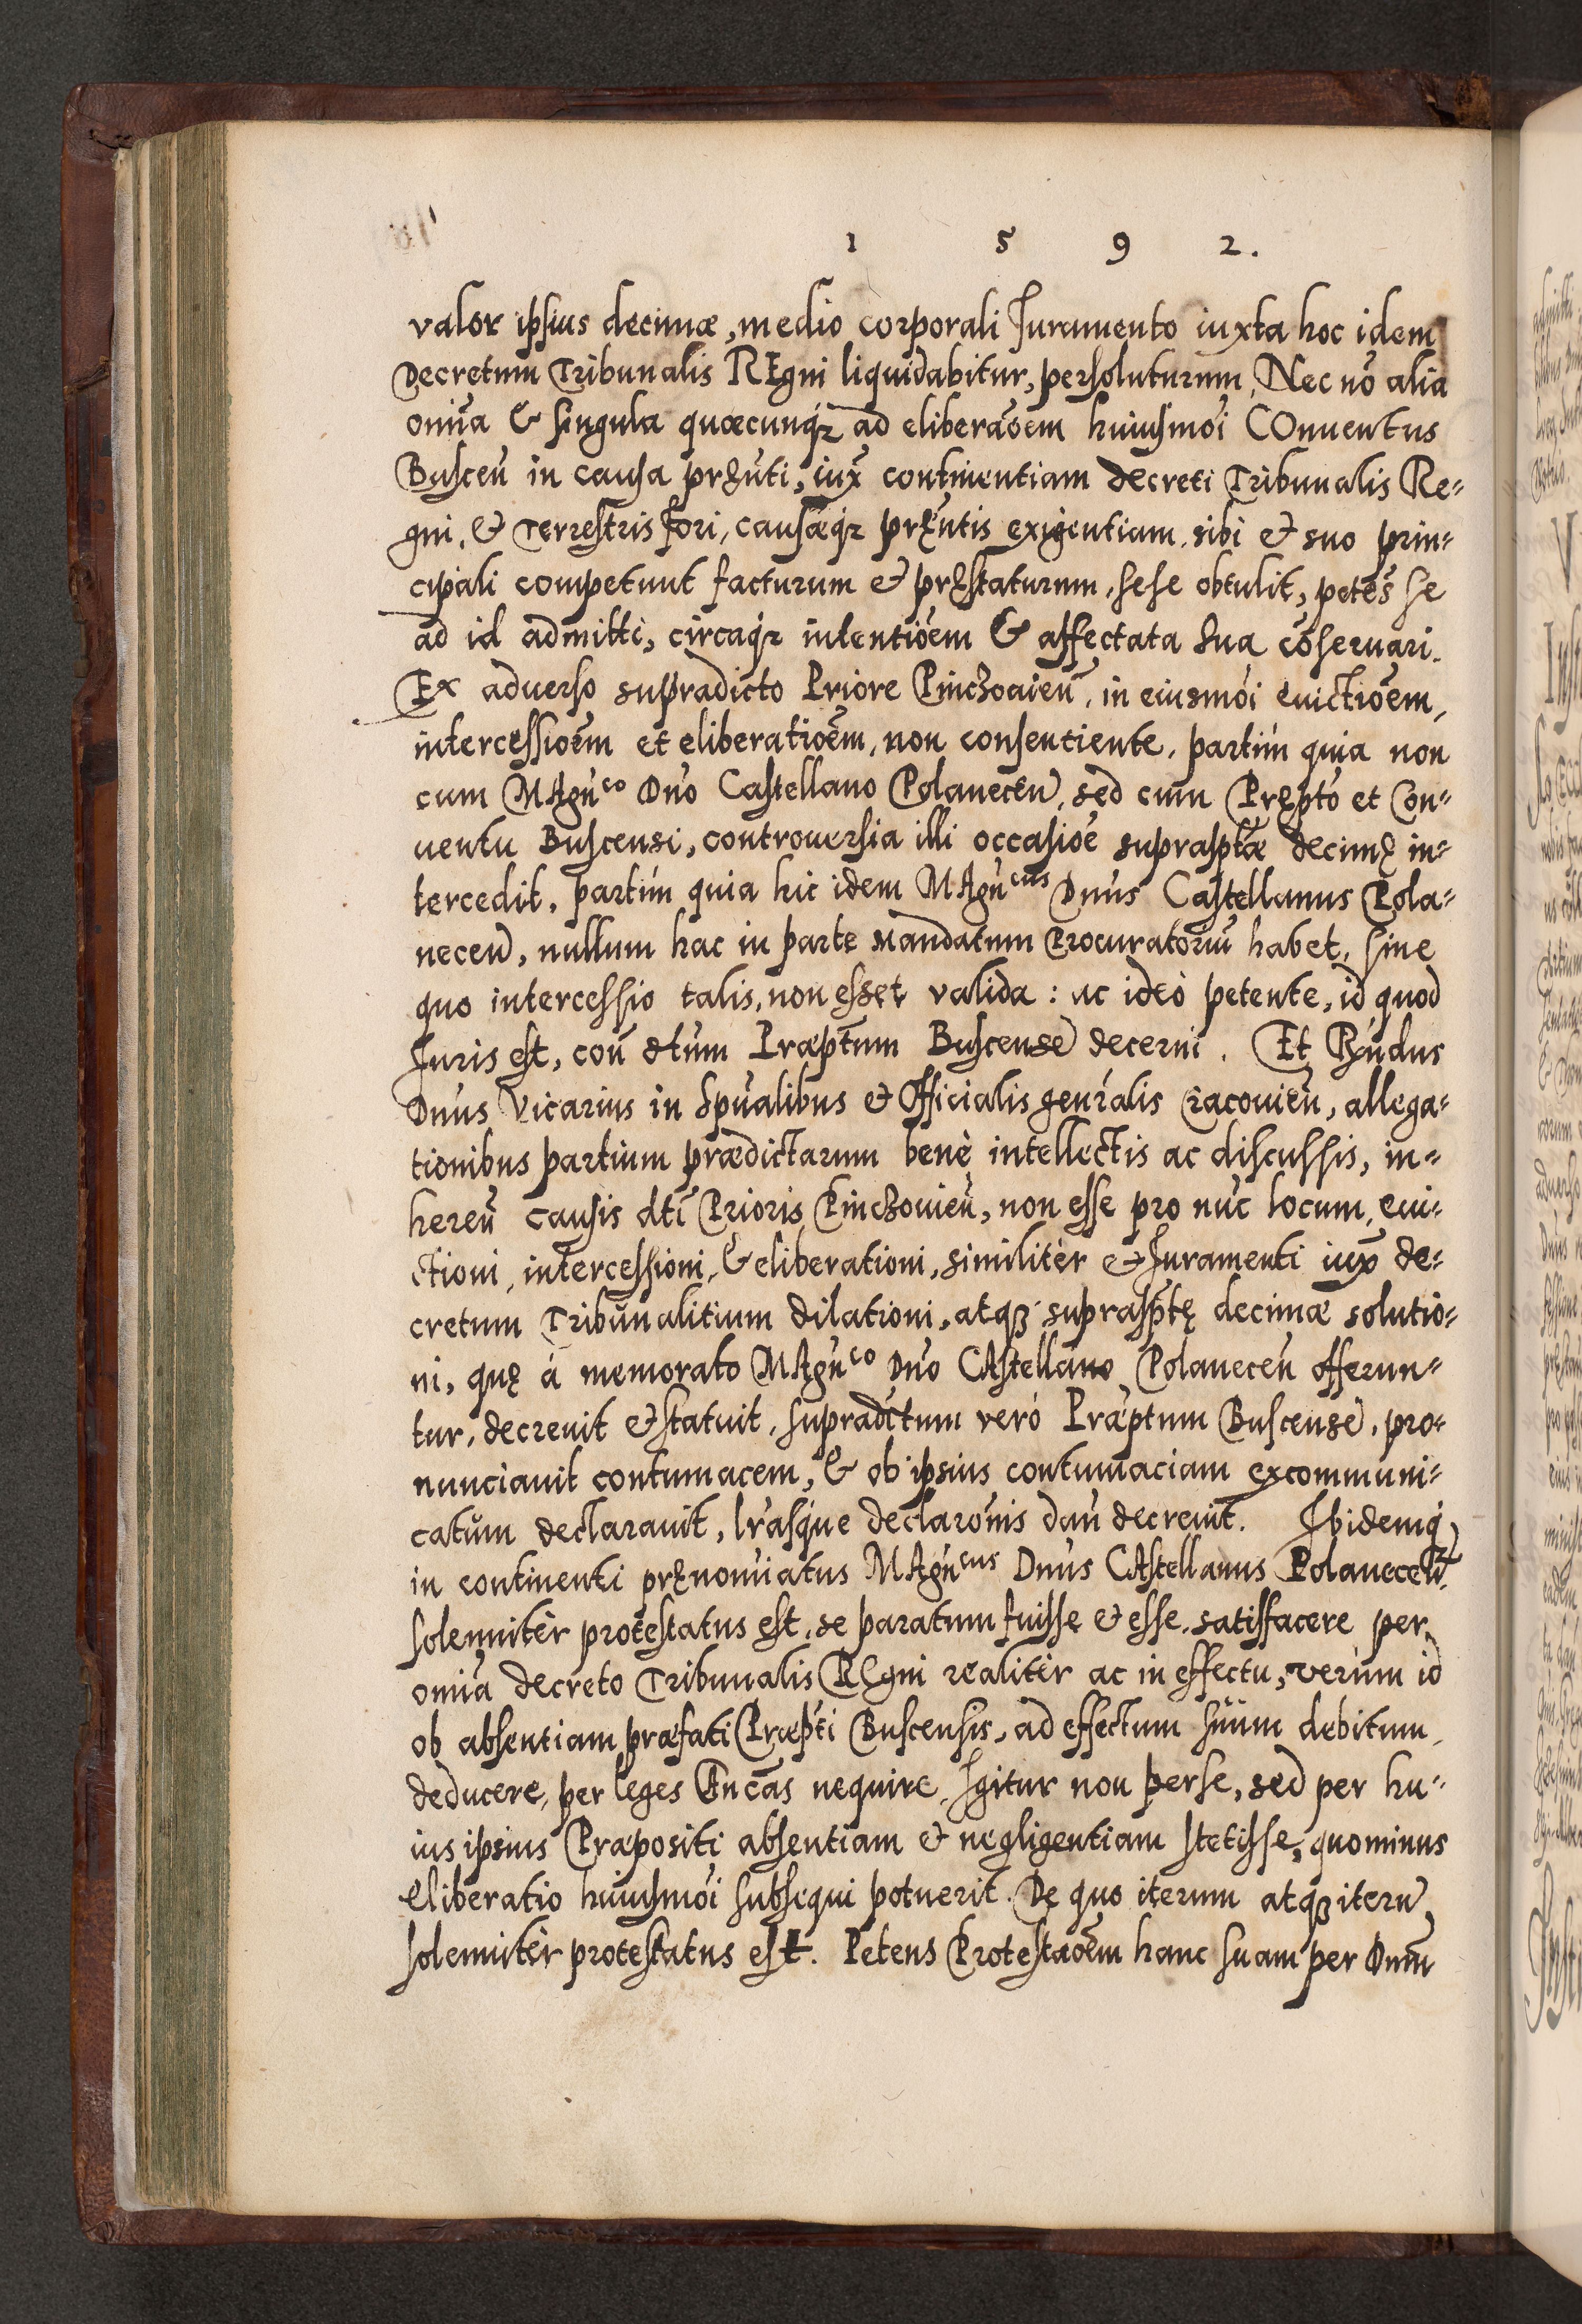 1 5 9 2.
valor ipsius decimæ, medio corporali Iuramento iuxta hoc idem
Decretum Tribunalis REgni liquidabitur, persoluturum, Nec nō alia
om̄ia & singula quæcunqꝫ ad eliberaōem huiusmōi COnuentus
Buscen̄ in causa pręn̄ti, iux̄ continentiam decreti Tribunalis Re=
gni, & Terrestris fori, causæqꝫ pręn̄tis exigentiam, sibi et suo prin=
cipali competunt facturum et pręstaturum, sese obtulit, petēs se
ad id admitti, circaqꝫ intentiōem & affectata sua cōseruari.
Ex aduerso supradicto Priore Pinczouien̄, in eiusmōi euictiōem,
intercessiōem et eliberatiōem, non consentiente, partim quia non
cum MAgn̄co Dn̄o Castellano Polanecen̄, sed cum Pręp̄to et Con=
uentu Buscensi, controuersia illi occasiōe suprasp̄tæ decimę in=
tercedit, partim quia hic idem MAgn̄cus Dn̄us Castellanus Pola=
necen̄, nullum hac in parte Mandatum Procuratoriū habet, sine
quo intercessio talis, non esset valida : ac ideò petente, id quod
Iuris est, con̄ dtūm Præp̄tum Buscensē decerni. Et Rn̄dus
Dn̄us Vicarius in Spūalibus et Officialis gen̄ralis Cracouien̄, allega=
tionibus partium prædictarum benè intellectis ac discussis, in=
heren̄ causis dt̄i Prioris Pinczouien̄, non esse pro nūc locum, eui=
ctioni, intercessioni, & eliberationi, similitèr et Iuramenti iux̄ de=
cretum Tribunalitium dilationi, atqꝫ suprasp̄tę decimæ solutio=
ni, quę à memorato MAgn̄co Dn̄o CAstellano Polanecen̄ offerun=
tur, decreuit et statuit, supradc̄tum verò Præp̄tum Buscensē, pro=
nunciauit contumacem, & ob ipsius contumaciam excommuni=
catum declarauit, lr̄asque declarōnis dan̄ decreuit. Ibidemqꝫ
in continenti prę̄nomiatus MAgn̄cus Dn̄us CAstellanus Polanecen̄
solemnitèr protestatus est, se paratum fuisse et esse, satisfacere per
om̄ia decreto Tribunalis REgni realitèr ac in effectu, verùm id
ob absentiam præfati Præp̄ti Buscensis, ad effectum suum debitum
deducere, per leges An̄cās nequire, Igitur non per se, sed per hu=
ius ipsius Præpositi absentiam et negligentiam stetisse, quominus
eliberatio huiusmōi subsequi potuerit. De quo iterum atqꝫ iterū
solemnitèr protestatus est. Petens Protestaōem hanc suam per Dn̄m